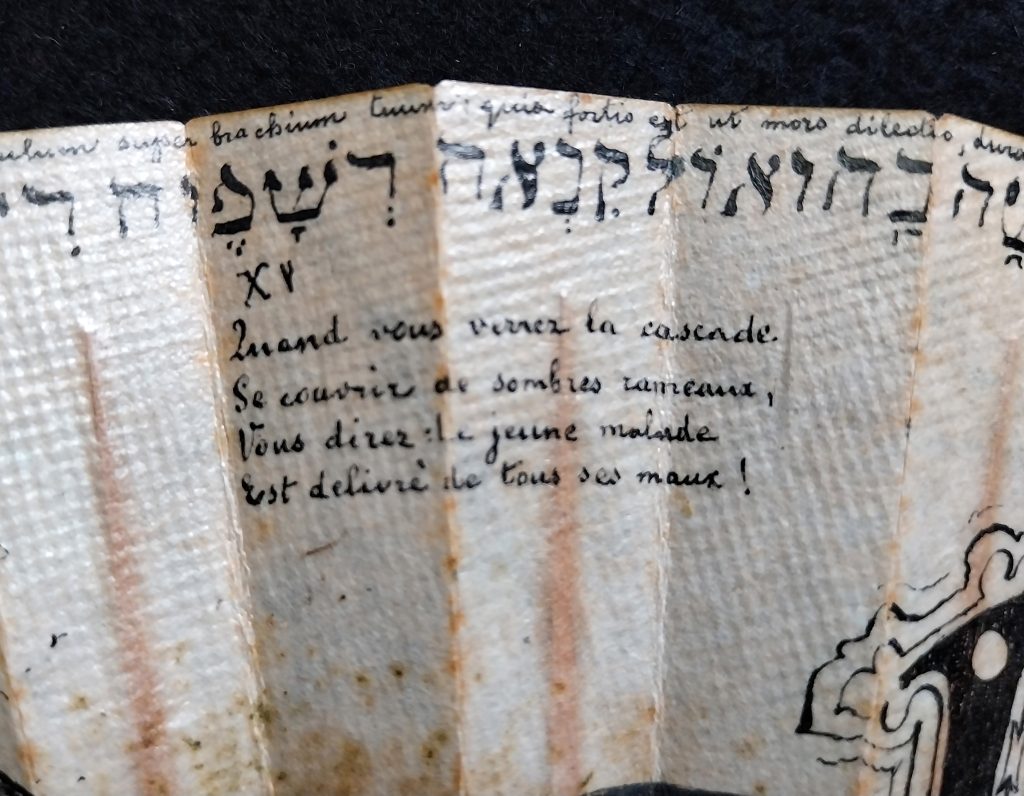 super brachium tuum: quia fortis est ut mors dilectio,
קִנְאָה רְשָׁפֶיהָ
XV
Quand vous verrez la cascade.
Se couvrir de sombres rameaux,
Vous direz : Le jeune malade
Est delivrè de tous ses maux !